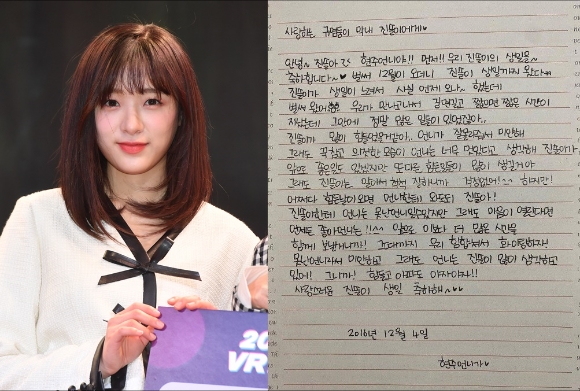 20
VR
사랑하는 규연들의 막내 진뜰이에게♡
안녕~ 진뜰아 현주언니야!! 먼저!! 우리 진뜰이의 생일을
축하합니다~♡ 벌써 12월이 오더니 진뜰이 생일까지 왔다
진뜰이가 생일이 느려서 사실 언제 오나~ 했는데
벌써 왔어 우리가 만난지 길면길고 짧으면 짧은 시간이
지났는데 그안에 정말 많은 일들이 있었잖아..
진뜰이가 많이 힘들었을거같아.. 언니가 잘 못해줘서 미안해
그래도 꾹참고 의젓한 모습이 언니는 너무 멋있다고 생각해 진뜰아
앞으로 좋은일도 있겠지만 또다른 힘든일들이 많이 생길거야
그래도 진뜰이는 알아서 척척 잘하니까 걱정없어!^^ 하지만!
어쩌다 힘든날이오면 언니한테 와도돼 진뜰아!
진뜰이한테 언니는 못난언니일수있지만 그래도 마음이 열린다면
언제든 좋아언니는!!^^ 앞으로 이보다 더 많은 시간을
함께 보낼거니까! 그때까지 우리 힘합쳐서 화이팅하자!
못난언니라서 미안하고 그래도 언니는 진뜰이 많이 생각하고
있어! 그니까! 힘들고 아파도 아자아자!!
사랑스러운 진뜰이 생일 축하해~♡♡
2016년 12월 4일
현주언니가♡